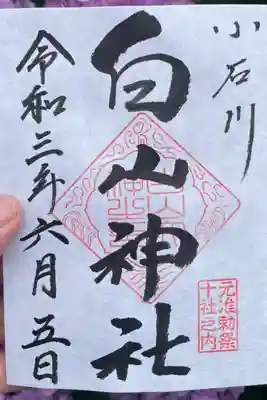 小石川
白山神社
令和三年六月五日
元准勅祭
十社之内